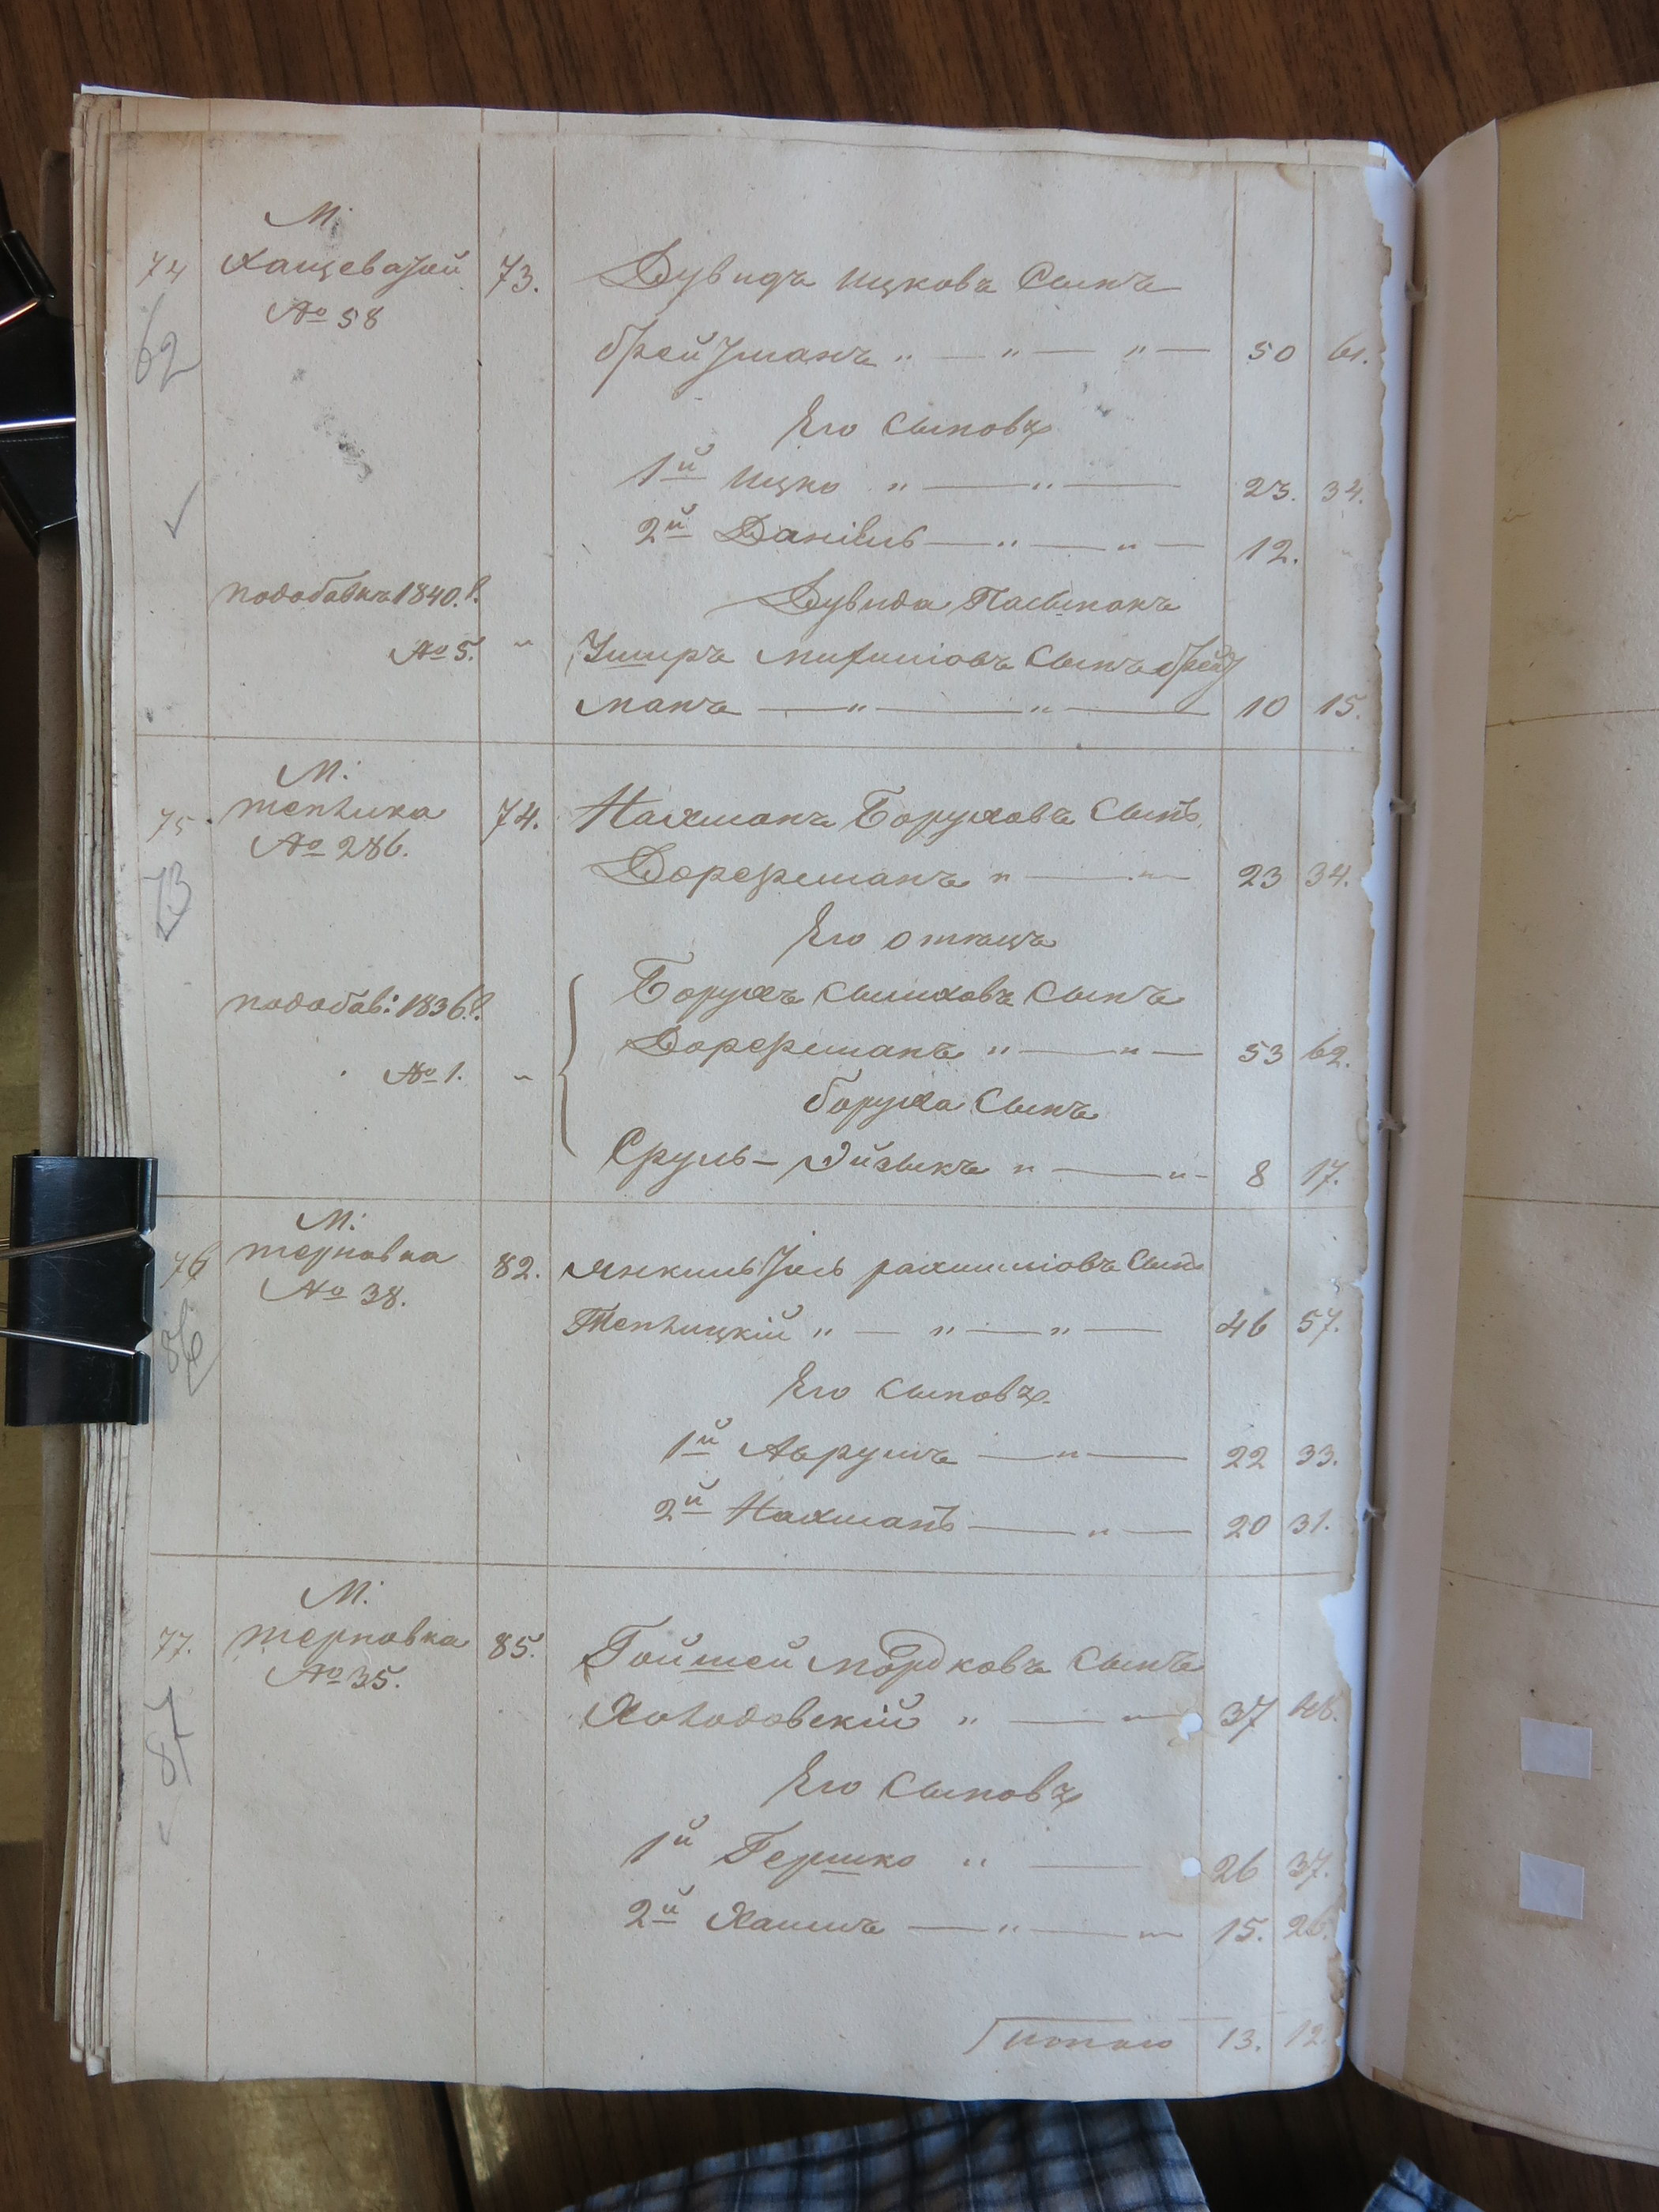 М:
74 Хащеватой 73. Дувидъ Ицковъ Сынъ
№ 58
62
брейзманъ " — " — " — 50 61.
Его Сыновъя
1й Ицко " — " — 23. 34.
2й Даніель — " — " — 12.
подобавкѣ 1840.г. Дувида Пасынокъ
№ 5. " Ушеръ Михилiовъ Сынъ брейз
манъ — " — " — 10 15.
М:
75 теплика 74. Нахманъ Боруховъ Сынъ
№ 286.
73
Дорфманъ " — " — 23 34.
Его отецъ
Борухъ Сымховъ Сынъ
подобав: 1836.г.
Дорфманъ " — " — 53 62.
№ 1. "
боруха Сынъ
Сруль - Эйзыкъ " — " - 8 17.
М:
76 терновка 82. Янкиль Іось Сынъ
№ 38.
86
Теплицкій " — " — " — 46 57.
Его Сыновъя
1й Аврумъ — " — 22 33.
2й Нахманъ — " — 20 31.
М:
77. терновка 85. Гойшей Мордковъ Сынъ
№ 35.
87
Холодовскій " — " — 37 48.
Его Сыновъя
1й Гершко " — 26 37.
2й Хаимъ — " — " 15. 26.
Итого 13. 12